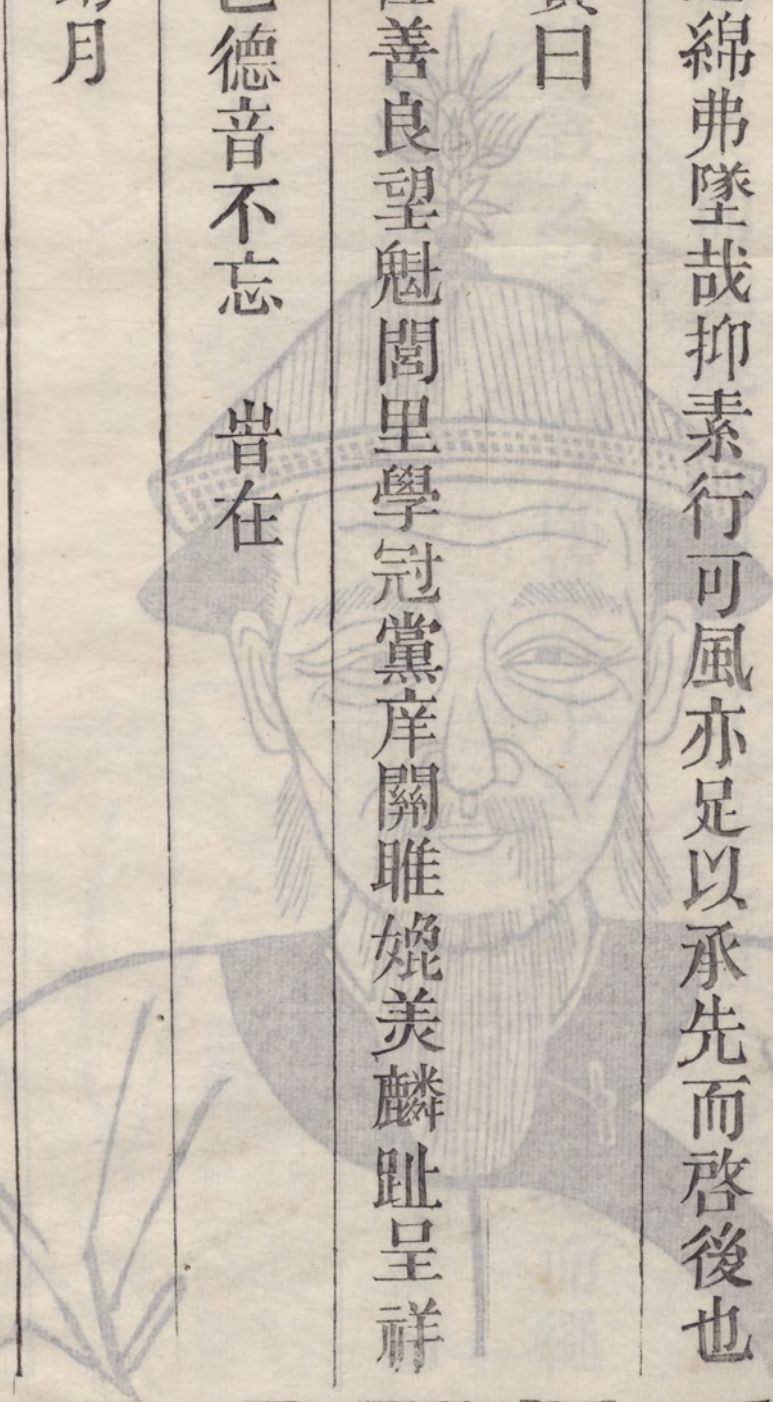 綿弗墜哉抑素行可風亦足以承先而啓後也
曰
善良望魁閭里學冠黨庠關雎媲美麟趾呈祥
德音不忘　旹在
月